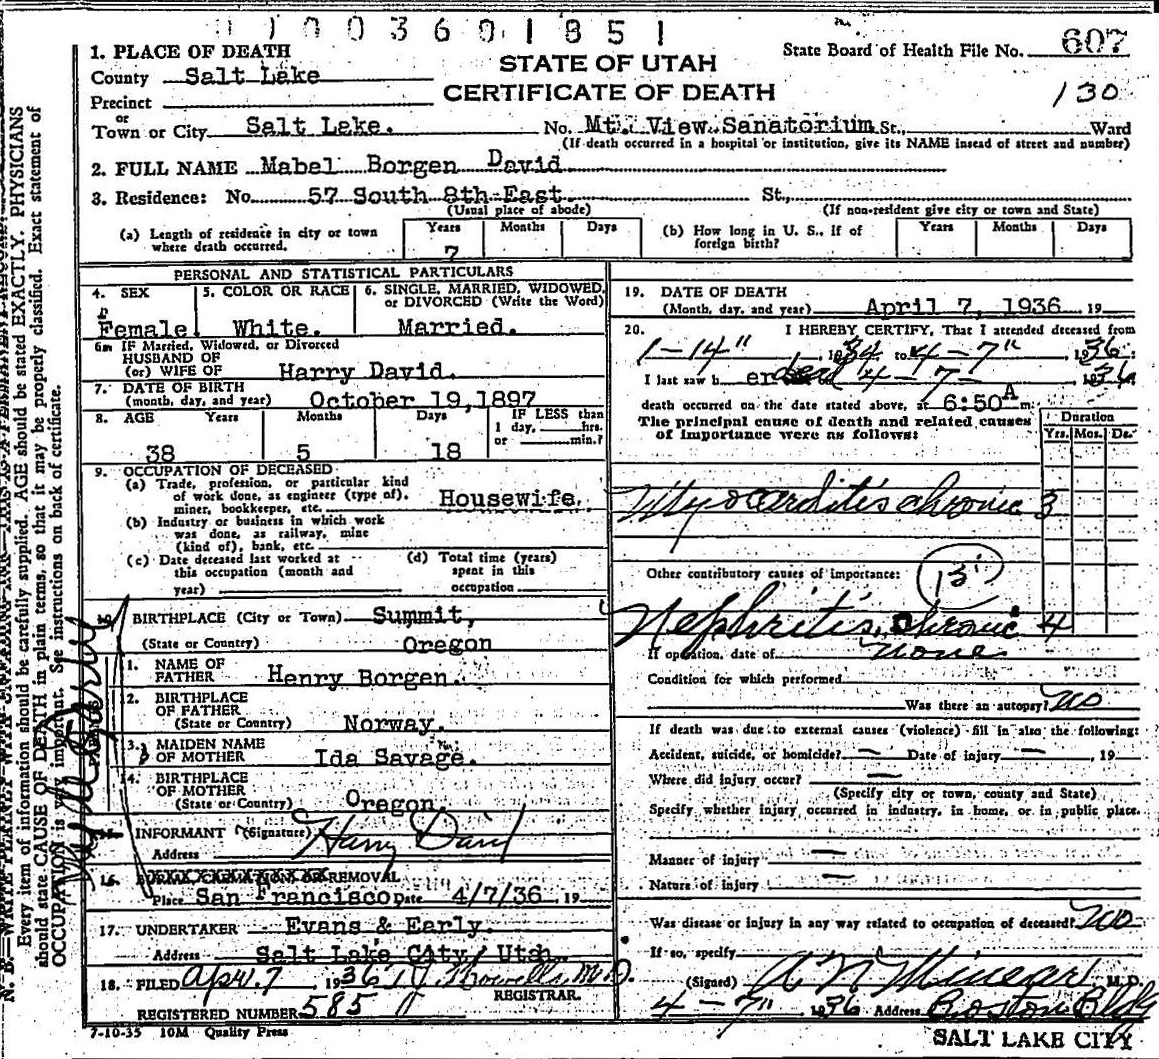 1003601851
State Board of Health File No. 607
STATE OF UTAH
CERTIFICATE OF DEATH
130
1. PLACE OF DEATH
County Salt Lake
Precinct
or
Town or City Salt Lake. No. Mt. View Sanatorium St., Ward
(If death occurred in a hospital or institution, give its NAME insead of street and number)
2. FULL NAME Mabel Borgen David
3. Residence: No. 57 South 8th East St.,
(Usual place of abode) (If non-resident give city or town and State)
(a) Length of residence in city or town where death occurred. Years 7 Months Days
(b) How long in U. S., if of foreign birth? Years Months Days
PERSONAL AND STATISTICAL PARTICULARS
4. SEX Female.
5. COLOR OR RACE White.
6. SINGLE, MARRIED, WIDOWED, or DIVORCED (Write the Word) Married.
6a IF Married, Widowed, or Divorced
HUSBAND OF
(or) WIFE OF Harry David.
7. DATE OF BIRTH
(month, day, and year) October 19,1897
8. AGE Years 38 Months 5 Days 18 IF LESS than 1 day, hrs. or min.?
9. OCCUPATION OF DECEASED
(a) Trade, profession, or particular kind
of work done, as engineer (type of).
miner, bookkeeper, etc. Housewife.
(b) Industry or business in which work
was done, as railway, mine
(kind of), bank, etc.
(c) Date deceased last worked at
this occupation (month and
year)
(d) Total time (years)
spent in this
occupation
BIRTHPLACE (City or Town) Summit,
(State or Country) Oregon
11. NAME OF
FATHER Henry Borgen.
12. BIRTHPLACE
OF FATHER
(State or Country) Norway.
13. MAIDEN NAME
OF MOTHER Ida Savage.
14. BIRTHPLACE
OF MOTHER
(State or Country) Oregon.
INFORMANT (Signature) Harry David
Address
16. BURIAL, CREMATION OR REMOVAL
Place San Francisco Date 4/7/36 , 19
17. UNDERTAKER Evans & Early.
Address Salt Lake City, Utah.
18. FILED Apr. 7, 1936 M.D.
REGISTRAR.
REGISTERED NUMBER 585
7-10-35 10M Quality Press
19. DATE OF DEATH
(Month, day, and year) April 7, 1936. 19
20. I HEREBY CERTIFY, That I attended deceased from
1-14" 1934 to 4-7" 1936:
I last saw h er 4-7- 1936
death occurred on the date stated above, at 6:50 A m:
The principal cause of death and related causes
of importance were as follows:
Duration
Yrs. Mos. Ds.
Myocarditis chronic 3
Other contributory causes of importance:
131
Nephritis, chronic 4
If operation, date of none
Condition for which performed
Was there an autopsy? no
If death was due to external causes (violence) fill in also the following:
Accident, suicide, or homicide? — Date of injury — , 19
Where did injury occur? —
(Specify city or town, county and State)
Specify whether injury occurred in industry, in home, or in public place.
Manner of injury —
Nature of injury —
Was disease or injury in any way related to occupation of deceased? no
If so, specify
(Signed) A N Minear M.D.
4-7" 1936 Address Boston Bldg
SALT LAKE CITY
Every item of information should be carefully supplied. AGE should be stated EXACTLY. PHYSICIANS
should state CAUSE OF DEATH in plain terms, so that it may be properly classified. Exact statement of
OCCUPATION is very important. See instructions on back of certificate.